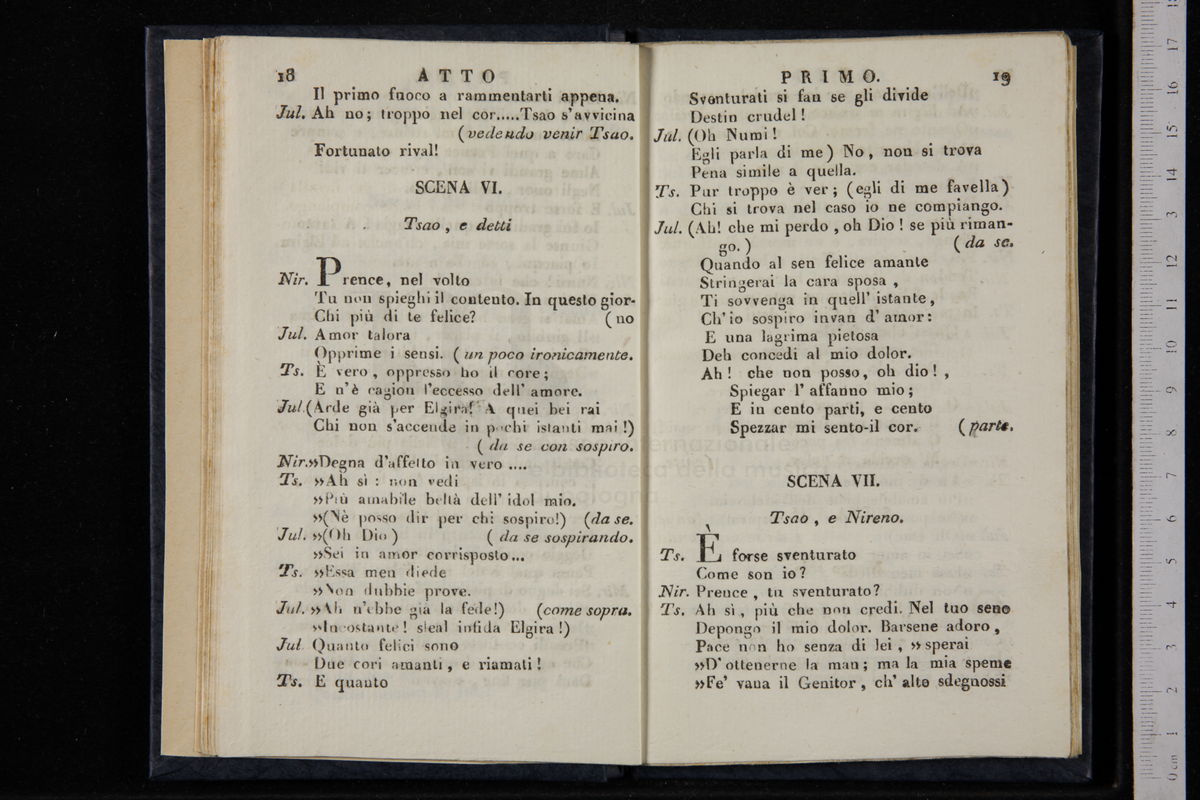 18 ATTO
Il primo fuoco a rammentarti appena.
Jul. Ah no; troppo nel cor.....Tsao s'avvicina
(vedendo venir Tsao.
Fortunato rival!
SCENA VI.
Tsao, e detti
Nir. Prence, nel volto
Tu non spieghi il contento. In questo gior-
Chi più di te felice? (no
Jul. Amor talora
Opprime i sensi. (un poco ironicamente.
Ts. È vero, oppresso ho il core;
E n'è cagion l'eccesso dell' amore.
Jul.(Arde già per Elgira! A quei bei rai
Chi non s'accende in pochi istanti mai!)
(da se con sospiro.
Nir.»Degna d'affetto in vero ....
Ts. »Ah sì: non vedi
»Più amabile beltà dell' idol mio.
»(Nè posso dir per chi sospiro!) (da se.
Jul. »(Oh Dio) (da se sospirando.
»Sei in amor corrisposto...
Ts. »Essa men diede
»Non dubbie prove.
Jul. »Ah n'ebbe già la fede!) (come sopra.
»Incostante! sleal infida Elgira!)
Jul Quanto felici sono
Due cori amanti, e riamati!
Ts. E quanto
PRIMO. 19
Sventurati si fan se gli divide
Destin crudel!
Jul. (Oh Numi!
Egli parla di me) No, non si trova
Pena simile a quella.
Ts. Pur troppo è ver; (egli di me favella)
Chi si trova nel caso io ne compiango.
Jul. (Ah! che mi perdo, oh Dio! se più riman-
go.) (da se.
Quando al sen felice amante
Stringerai la cara sposa,
Ti sovvenga in quell' istante,
Ch'io sospiro invan d'amor:
E una lagrima pietosa
Deh concedi al mio dolor.
Ah! che non posso, oh dio!,
Spiegar l'affanno mio;
E in cento parti, e cento
Spezzar mi sento-il cor. (parte.
SCENA VII.
Tsao, e Nireno.
Ts. È forse sventurato
Come son io?
Nir. Prence, tu sventurato?
Ts. Ah sì, più che non credi. Nel tuo seno
Depongo il mio dolor. Barsene adoro,
Pace non ho senza di lei, »sperai
»D'ottenerne la man; ma la mia speme
»Fe' vana il Genitor, ch' alto sdegnossi